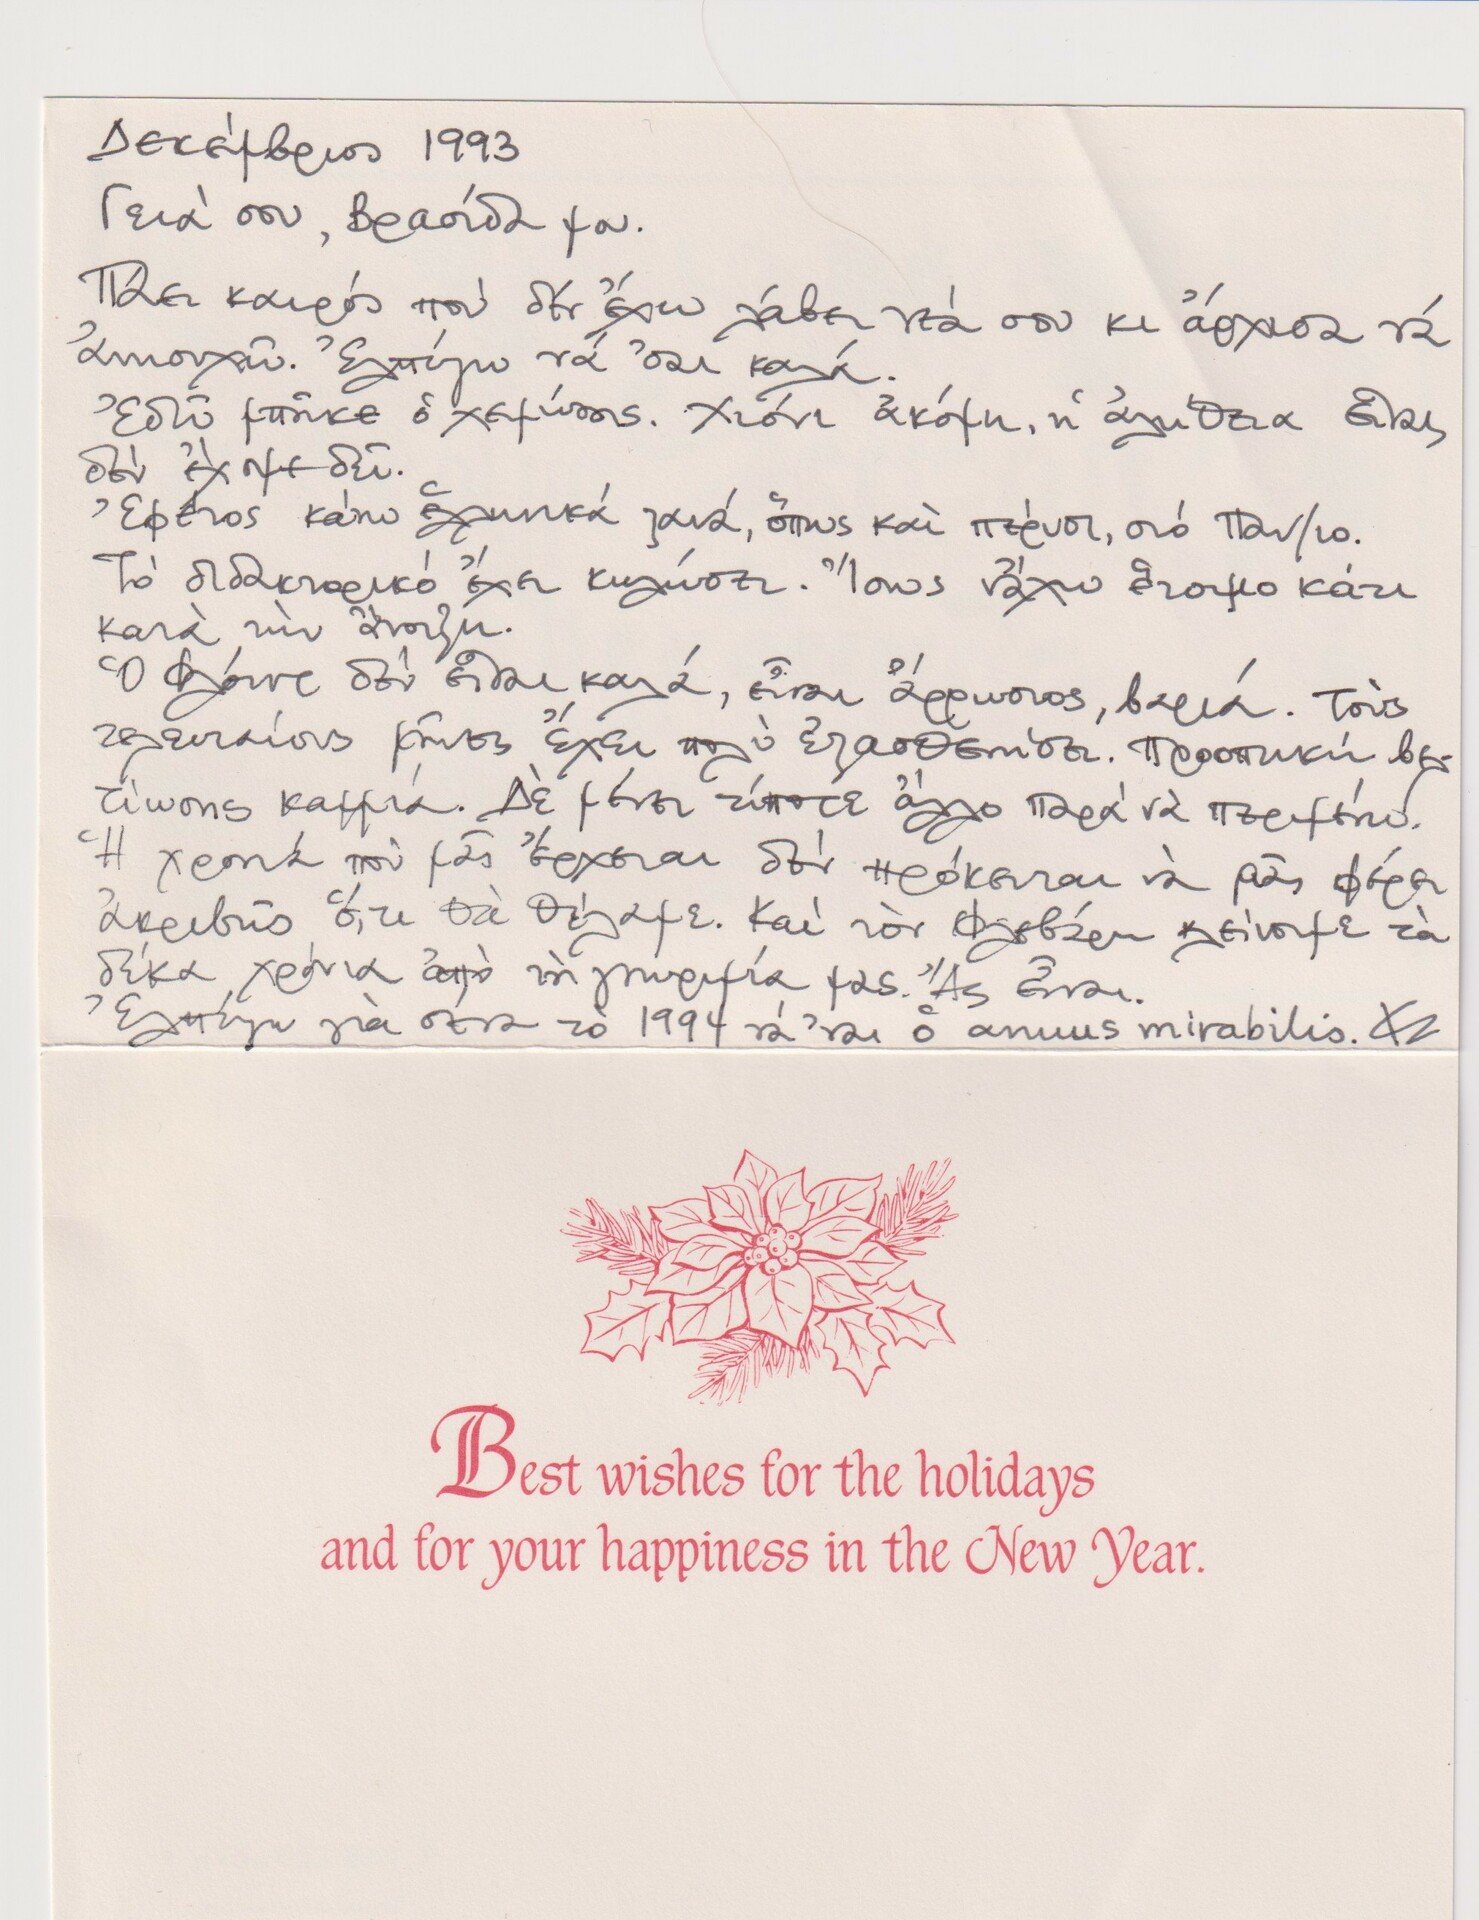 Δεκέμβριος 1993
Γειά σου, Βρασίδα μου.
Πάει καιρός πού δέν ἔχω λάβει νέα σου κι ἄρχισα νά
ἀνησυχῶ. Ἐλπίζω νά 'σαι καλά.
Ἐδῶ μπῆκε ὁ χειμώνας. Χιόνι ἀκόμη, ἡ ἀλήθεια εἶναι,
δέν ἔχουμε δεῖ.
Ἐφέτος κάνω ἑλληνικά ξανά, ὅπως καὶ πέρυσι, στό Παν/ιο.
Τό διδακτορικό ἔχει κωλώσει. Ἴσως νἄχω ἕτοιμο κάτι
κατὰ τὴν ἄνοιξη.
Ὁ δέν εἶναι καλά, εἶναι ἄρρωστος, βαριά. Τοὺς
τελευταίους μῆνες ἔχει πολὺ ἐξασθενήσει. Προοπτική βελ-
τίωσης καμμιά. Δὲ μένει τίποτε ἄλλο παρά νὰ περιμένω.
Ἡ χρονιά ποὺ μᾶς ἔρχεται δέν πρόκειται νὰ μᾶς φέρει
ἀκριβῶς ὅ,τι θὰ θέλαμε. Καί τὸν Φλεβάρη κλείνουμε τὰ
δέκα χρόνια ἀπὸ τὴ γνωριμία μας. Ἄς εἶναι.
Ἐλπίζω γιὰ σένα τὸ 1994 νά 'ναι ὁ annus mirabilis.
Best wishes for the holidays
and for your happiness in the New Year.